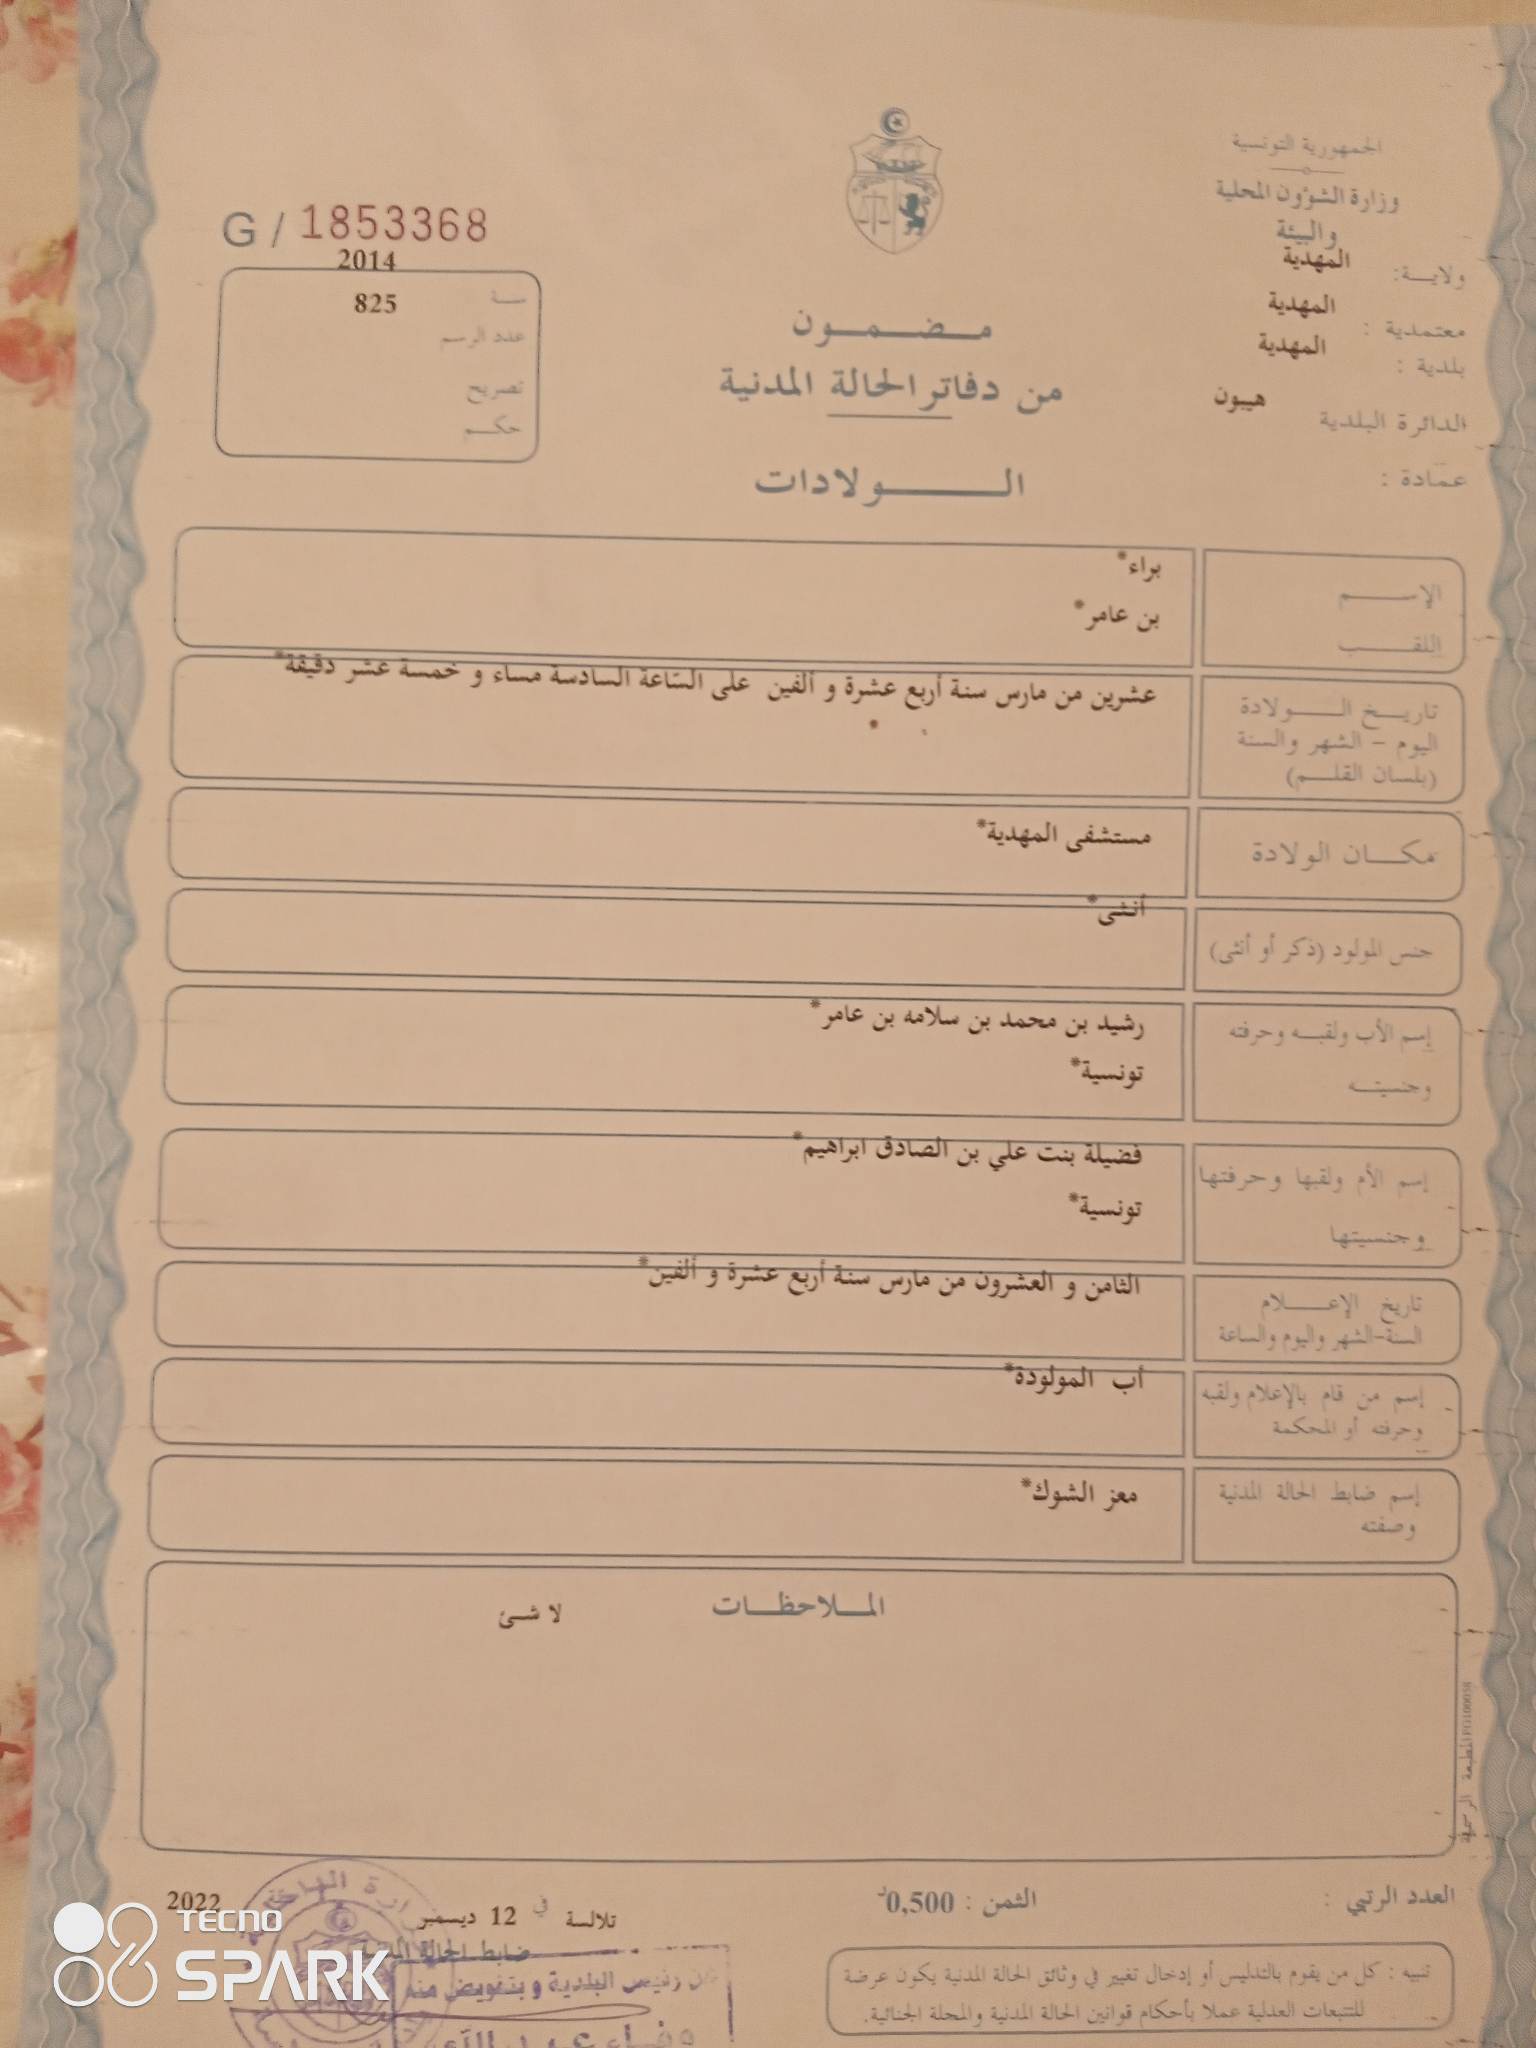 الجمهورية التونسية
وزارة الشؤون المحلية
والبيئة
ولايـــة: المهدية
معتمدية : المهدية
بلدية : المهدية
الدائرة البلدية هيبون
عمادة :
G / 1853368
2014
سنــة 825
عدد الرسم
تصريح
حكـــم
مـــضـــمـــون
من دفاتر الحالة المدنية
الـــــولادات
الإســـــم براء*
اللقـــــب بن عامر*
تاريـــخ الـــــولادة عشرين من مارس سنة أربع عشرة و ألفين على السّاعة السادسة مساء و خمسة عشر دقيقة*
اليوم – الشهر والسنة *
(بلسان القلـــم)
مكـــان الولادة مستشفى المهدية*
جنس المولود (ذكر أو أنثى) أنثى*
إسم الأب ولقبـــه وحرفته رشيد بن محمد بن سلامه بن عامر*
وجنسيتـــه تونسية*
إسم الأم ولقبها وحرفتها فضيلة بنت علي بن الصادق ابراهيم*
وجنسيتها تونسية*
تاريخ الإعـــــلام الثامن و العشرون من مارس سنة أربع عشرة و ألفين*
السنة-الشهر واليوم والساعة
إسم من قام بالإعلام ولقبه أب المولودة*
وحرفته أو المحكمة
إسم ضابط الحالة المدنية معز الشوك*
وصفته
المـــلاحظـــات لا شئ
المطبعة الرسمية
العدد الرتبي :
الثمن : 0,500د
تلالسة في 12 ديسمبر 2022
ضابط الحالة المدنية
عن رئيس البلدية و بتفويض منه
تنبيه : كل من يقوم بالتدليس أو إدخال تغيير في وثائق الحالة المدنية يكون عرضة
للتتبعات العدلية عملا بأحكام قوانين الحالة المدنية والمجلة الجنائية.
TECNO
SPARK